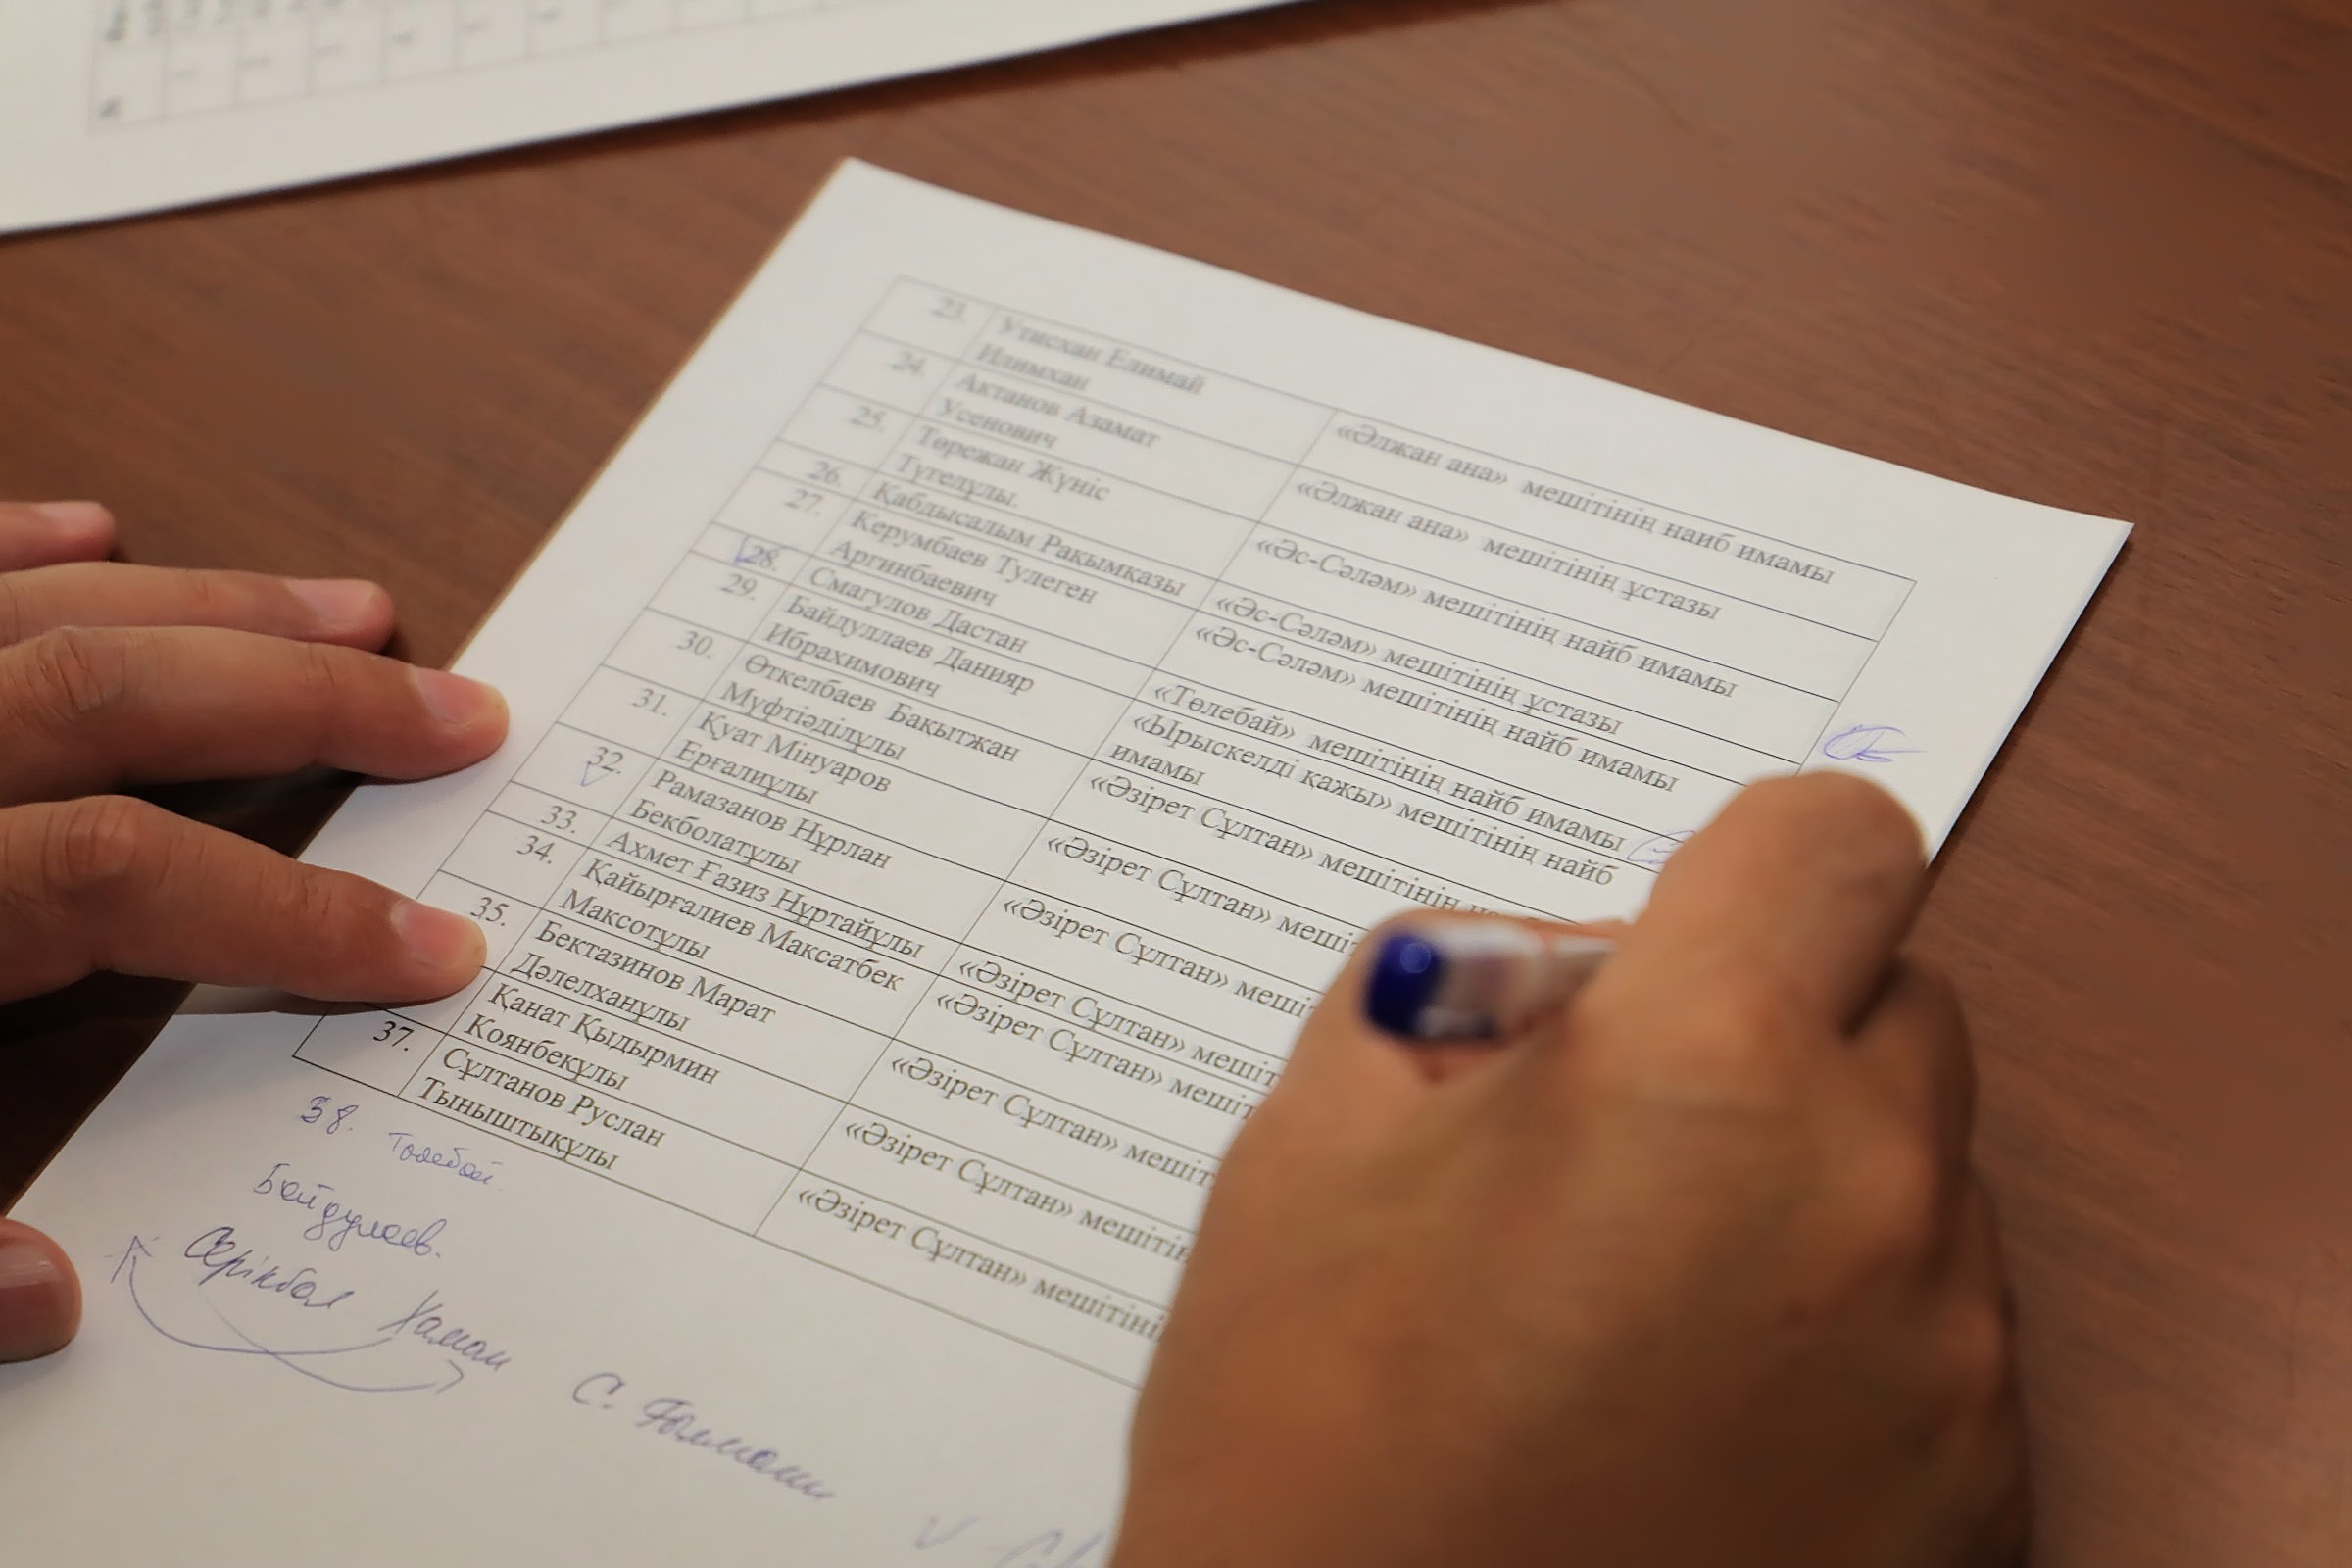 23. Утисхан Елимай
Илимхан
«Әлжан ана» мешітінің наиб имамы
24. Актанов Азамат
Усенович
«Әлжан ана» мешітінің ұстазы
25. Төрежан Жүніс
Түгелұлы.
«Әс-Сәләм» мешітінің найб имамы
26. Қабдысалым Рақымказы
«Әс-Сәләм» мешітінің ұстазы
27. Керумбаев Тулеген
Аргинбаевич
«Әс-Сәләм» мешітінің найб имамы
28. Смагулов Дастан
«Төлебай» мешітінің найб имамы
29. Байдуллаев Данияр
Ибрахимович
«Ырыскелді қажы» мешітінің найб
имамы
30. Өткелбаев Бақытжан
Мүфтіәділұлы
«Әзірет Сұлтан» мешітінің
31. Қуат Мінуаров
Ерғалиұлы
«Әзірет Сұлтан»
32. Рамазанов Нұрлан
Бекболатұлы
«Әзірет Сұлтан»
33. Ахмет Ғазиз Нұртайұлы
«Әзірет Сұлтан»
34. Қайырғалиев Максатбек
Максотұлы
«Әзірет Сұлтан»
35. Бектазинов Марат
Дәлелханұлы
«Әзірет Сұлтан»
Қанат Қыдырмин
Коянбекұлы
«Әзірет Сұлтан»
37. Сұлтанов Руслан
Тыныштықұлы
«Әзірет Сұлтан»
38. Төлебай.
Байдулаев.
Серікбол
С.